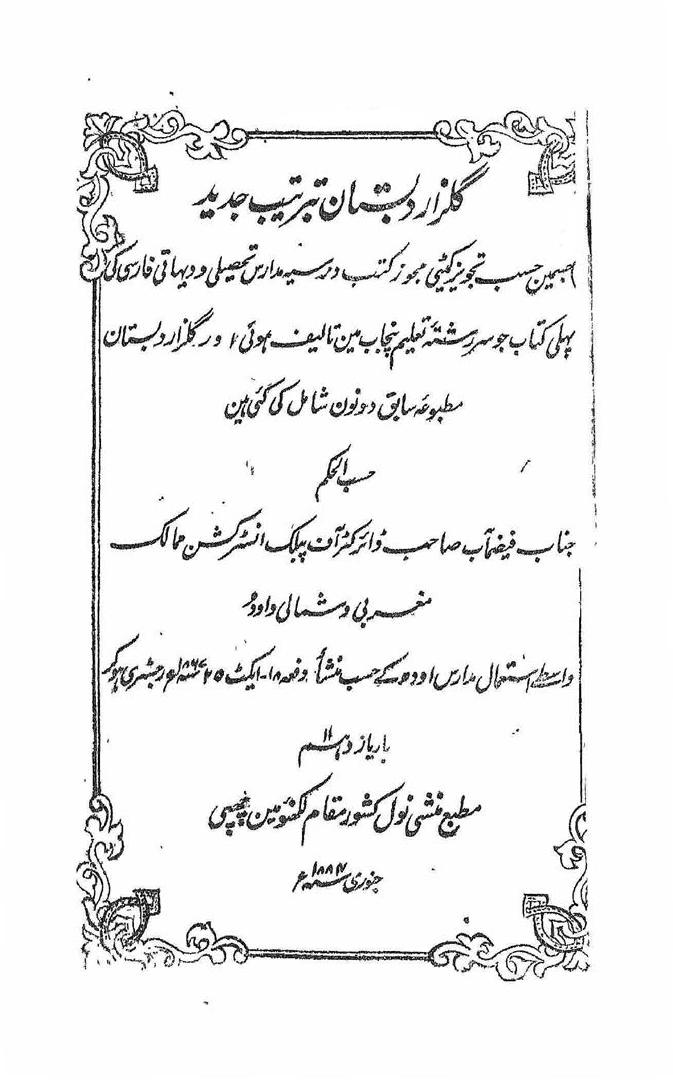 گلزار دبستان بترتیب جدید
اسمین حسب تجویز کمیٹی مجوز کتب درسیہ مدارس تحصیلی و دیہاتی فارسی کی
پہلی کتاب جو سررشتۂ تعلیم پنجاب مین تالیف ہوئی اور گلزار دبستان
مطبوعہ سابق دونون شامل کی گئی ہین
حسب الحکم
جناب فیضمآب صاحب ڈائرکٹر آف پبلک انسٹرکشن ممالک
مغربی و شمالی و اودھ
واسطے استعمال مدارس اودھ کے حسب منشأ دفعہ ۱۸۔ ایکٹ ۲۵ رجسٹری ہوکر
بار یازدہم ۱۱
مطبع منشی نول کشور مقام لکھنؤ مین چھپی
جنوری سنہ ۱۸۸۷ ء